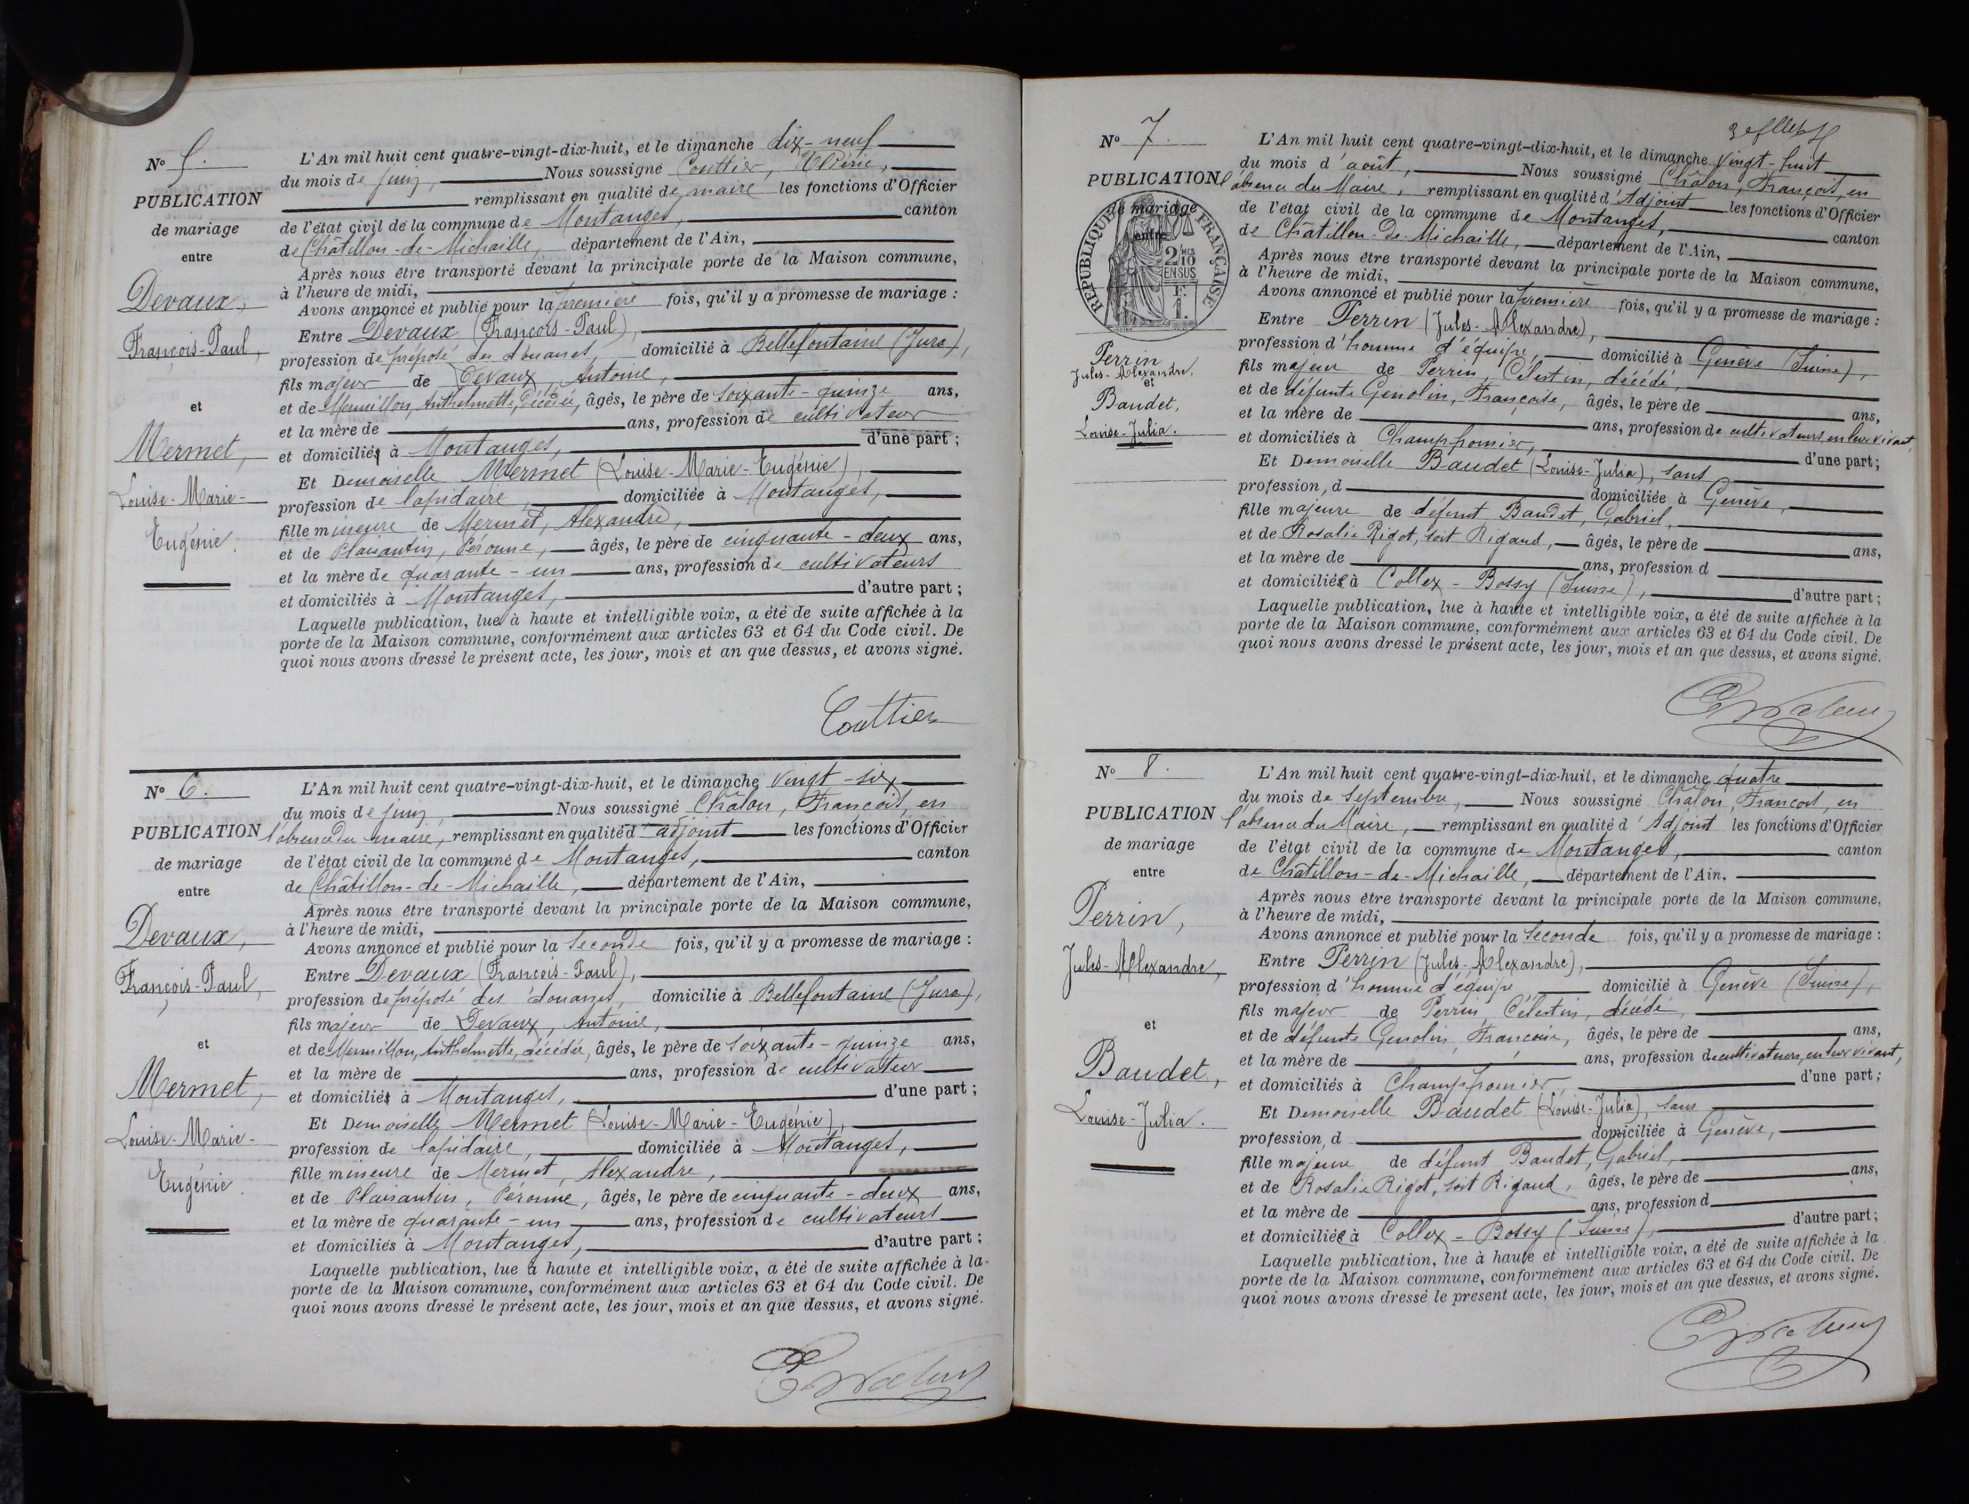 N° 5.
PUBLICATION
de mariage
entre
Devaux,
François-Paul,
et
Mermet,
Louise-Marie-
Eugénie.
L'An mil huit cent quatre-vingt-dix-huit, et le dimanche dix-neuf
du mois de juin, Nous soussigné Couttier,
remplissant en qualité de maire les fonctions d'Officier
de l'état civil de la commune de Montanges, canton
de Châtillon-de-Michaille, département de l'Ain,
Après nous être transporté devant la principale porte de la Maison commune,
à l'heure de midi,
Avons annoncé et publié pour la première fois, qu'il y a promesse de mariage :
Entre Devaux (François-Paul),
profession de préposé des douanes, domicilié à Bellefontaine (Jura),
fils majeur de Devaux, Antoine,
et de Mermillon, Anthelmette, décédée, âgés, le père de soixante-quinze ans,
et la mère de ans, profession de cultivateur
et domiciliés à Montanges, d'une part ;
Et Demoiselle Mermet (Louise-Marie-Eugénie),
profession de lapidaire domiciliée à Montanges,
fille mineure de Mermet, Alexandre,
et de Plaisantin, Péronne, âgés, le père de cinquante-deux ans,
et la mère de quarante-un ans, profession de cultivateurs
et domiciliés à Montanges, d'autre part ;
Laquelle publication, lue à haute et intelligible voix, a été de suite affichée à la
porte de la Maison commune, conformément aux articles 63 et 64 du Code civil. De
quoi nous avons dressé le présent acte, les jour, mois et an que dessus, et avons signé.
Couttier
N° 6.
PUBLICATION
de mariage
entre
Devaux,
François-Paul,
et
Mermet,
Louise-Marie-
Eugénie.
L'An mil huit cent quatre-vingt-dix-huit, et le dimanche vingt-six
du mois de juin, Nous soussigné Châlon, François, en
l'absence du maire, remplissant en qualité d'adjoint les fonctions d'Officier
de l'état civil de la commune de Montanges, canton
de Châtillon-de-Michaille, département de l'Ain,
Après nous être transporté devant la principale porte de la Maison commune,
à l'heure de midi,
Avons annoncé et publié pour la seconde fois, qu'il y a promesse de mariage :
Entre Devaux (François-Paul),
profession de préposé des douanes, domicilié à Bellefontaine (Jura),
fils majeur de Devaux, Antoine,
et de Mermillon, Anthelmette, décédée, âgés, le père de soixante-quinze ans,
et la mère de ans, profession de cultivateur
et domiciliés à Montanges, d'une part ;
Et Demoiselle Mermet (Louise-Marie-Eugénie),
profession de lapidaire, domiciliée à Montanges,
fille mineure de Mermet, Alexandre,
et de Plaisantin, Péronne, âgés, le père de cinquante-deux ans,
et la mère de quarante-un ans, profession de cultivateurs
et domiciliés à Montanges, d'autre part ;
Laquelle publication, lue à haute et intelligible voix, a été de suite affichée à la
porte de la Maison commune, conformément aux articles 63 et 64 du Code civil. De
quoi nous avons dressé le présent acte, les jour, mois et an que dessus, et avons signé.
N° 7.
PUBLICATION
de mariage
entre
RÉPUBLIQUE FRANÇAISE
2/10
EN SUS
F.
1.
Perrin
Jules-Alexandre,
et
Baudet,
Louise-Julia.
L'An mil huit cent quatre-vingt-dix-huit, et le dimanche vingt-huit
du mois d'août, Nous soussigné Châlon, François, en
l'absence du Maire, remplissant en qualité d'Adjoint les fonctions d'Officier
de l'état civil de la commune de Montanges, canton
de Châtillon-de-Michaille, département de l'Ain,
Après nous être transporté devant la principale porte de la Maison commune,
à l'heure de midi,
Avons annoncé et publié pour la première fois, qu'il y a promesse de mariage :
Entre Perrin (Jules-Alexandre),
profession d'homme d'équipe, domicilié à Genève (Suisse),
fils majeur de Perrin, Célestin, décédé,
et de défunte Genolin, Françoise, âgés, le père de ans,
et la mère de ans, profession de cultivateurs en leur vivant,
et domiciliés à Champfromier, d'une part ;
Et Demoiselle Baudet (Louise-Julia), sans
profession, d domiciliée à Genève,
fille majeure de défunt Baudet, Gabriel,
et de Rosalie Rigot, soit Rigaud, âgés, le père de ans,
et la mère de ans, profession d
et domiciliée à Collex-Bossy (Suisse), d'autre part ;
Laquelle publication, lue à haute et intelligible voix, a été de suite affichée à la
porte de la Maison commune, conformément aux articles 63 et 64 du Code civil. De
quoi nous avons dressé le présent acte, les jour, mois et an que dessus, et avons signé.
N° 8.
PUBLICATION
de mariage
entre
Perrin,
Jules-Alexandre,
et
Baudet,
Louise-Julia.
L'An mil huit cent quatre-vingt-dix-huit, et le dimanche quatre
du mois de septembre, Nous soussigné Châlon, François, en
l'absence du Maire, remplissant en qualité d'Adjoint les fonctions d'Officier
de l'état civil de la commune de Montanges, canton
de Châtillon-de-Michaille, département de l'Ain,
Après nous être transporté devant la principale porte de la Maison commune,
à l'heure de midi,
Avons annoncé et publié pour la seconde fois, qu'il y a promesse de mariage :
Entre Perrin (Jules-Alexandre),
profession d'homme d'équipe domicilié à Genève (Suisse),
fils majeur de Perrin, Célestin, décédé,
et de défunte Genolin, Françoise, âgés, le père de ans,
et la mère de ans, profession de cultivateurs, en leur vivant,
et domiciliés à Champfromier, d'une part ;
Et Demoiselle Baudet (Louise-Julia), sans
profession, d domiciliée à Genève,
fille majeure de défunt Baudet, Gabriel,
et de Rosalie Rigot, soit Rigaud, âgés, le père de ans,
et la mère de ans, profession d
et domiciliée à Collex-Bossy (Suisse), d'autre part ;
Laquelle publication, lue à haute et intelligible voix, a été de suite affichée à la
porte de la Maison commune, conformément aux articles 63 et 64 du Code civil. De
quoi nous avons dressé le présent acte, les jour, mois et an que dessus, et avons signé.